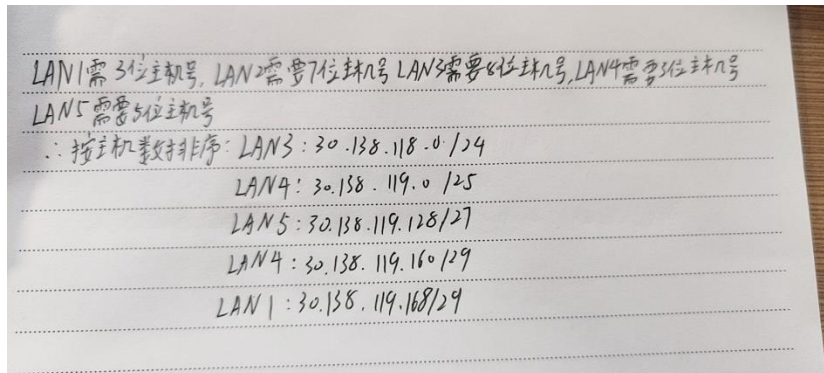 LAN1需3位主机号, LAN2需要7位主机号 LAN3需要8位主机号,LAN4需要3位主机号
LAN5需要5位主机号
∴按主机数排序: LAN3:30.138.118.0./24
LAN4:30.138.119.0/25
LAN5:30.138.119.128/27
LAN4:30.138.119.160/29
LAN1:30.138.119.168/29